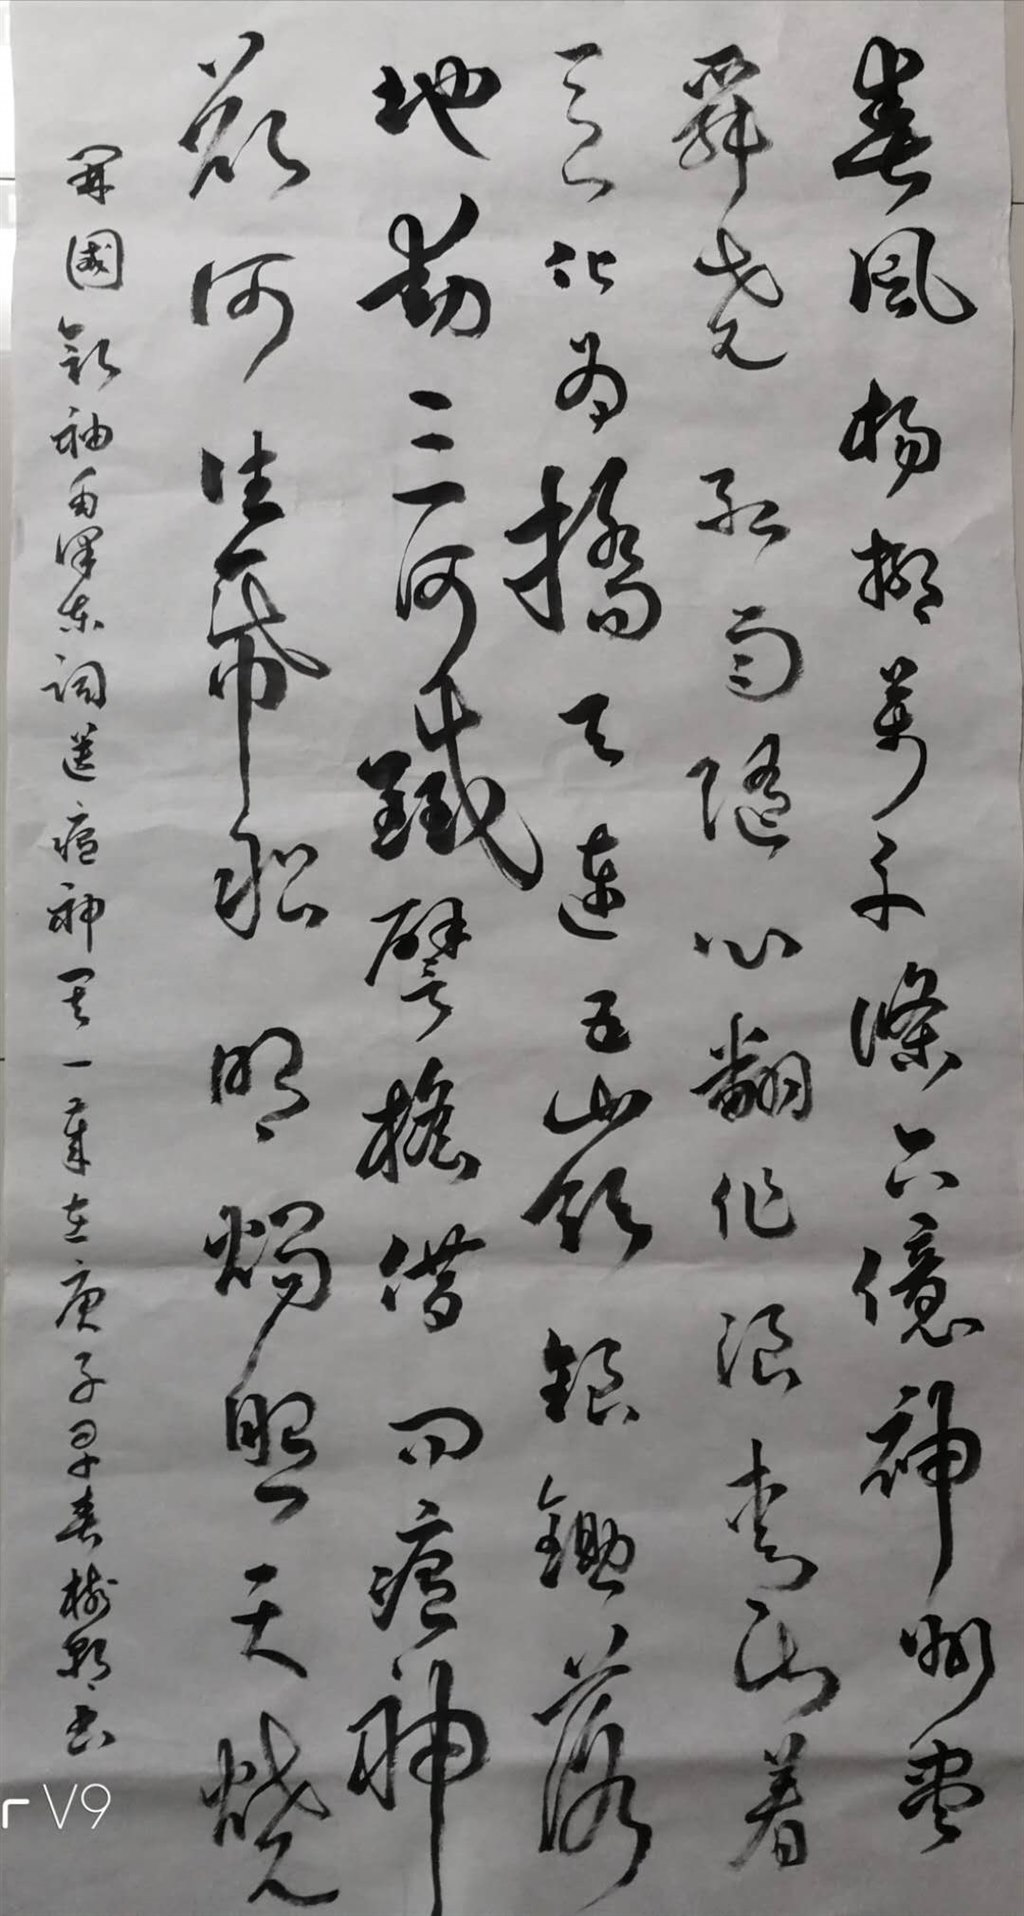 春風楊柳萬千條六億神州盡
舜堯紅雨隨心翻作浪青山着
意化為橋天連五嶺銀鋤落
地動三河鐵臂搖借问瘟神
欲何往紙船明燭照天燒
開國領袖毛澤東詞送瘟神其一章在庚子早春樹影书
V9